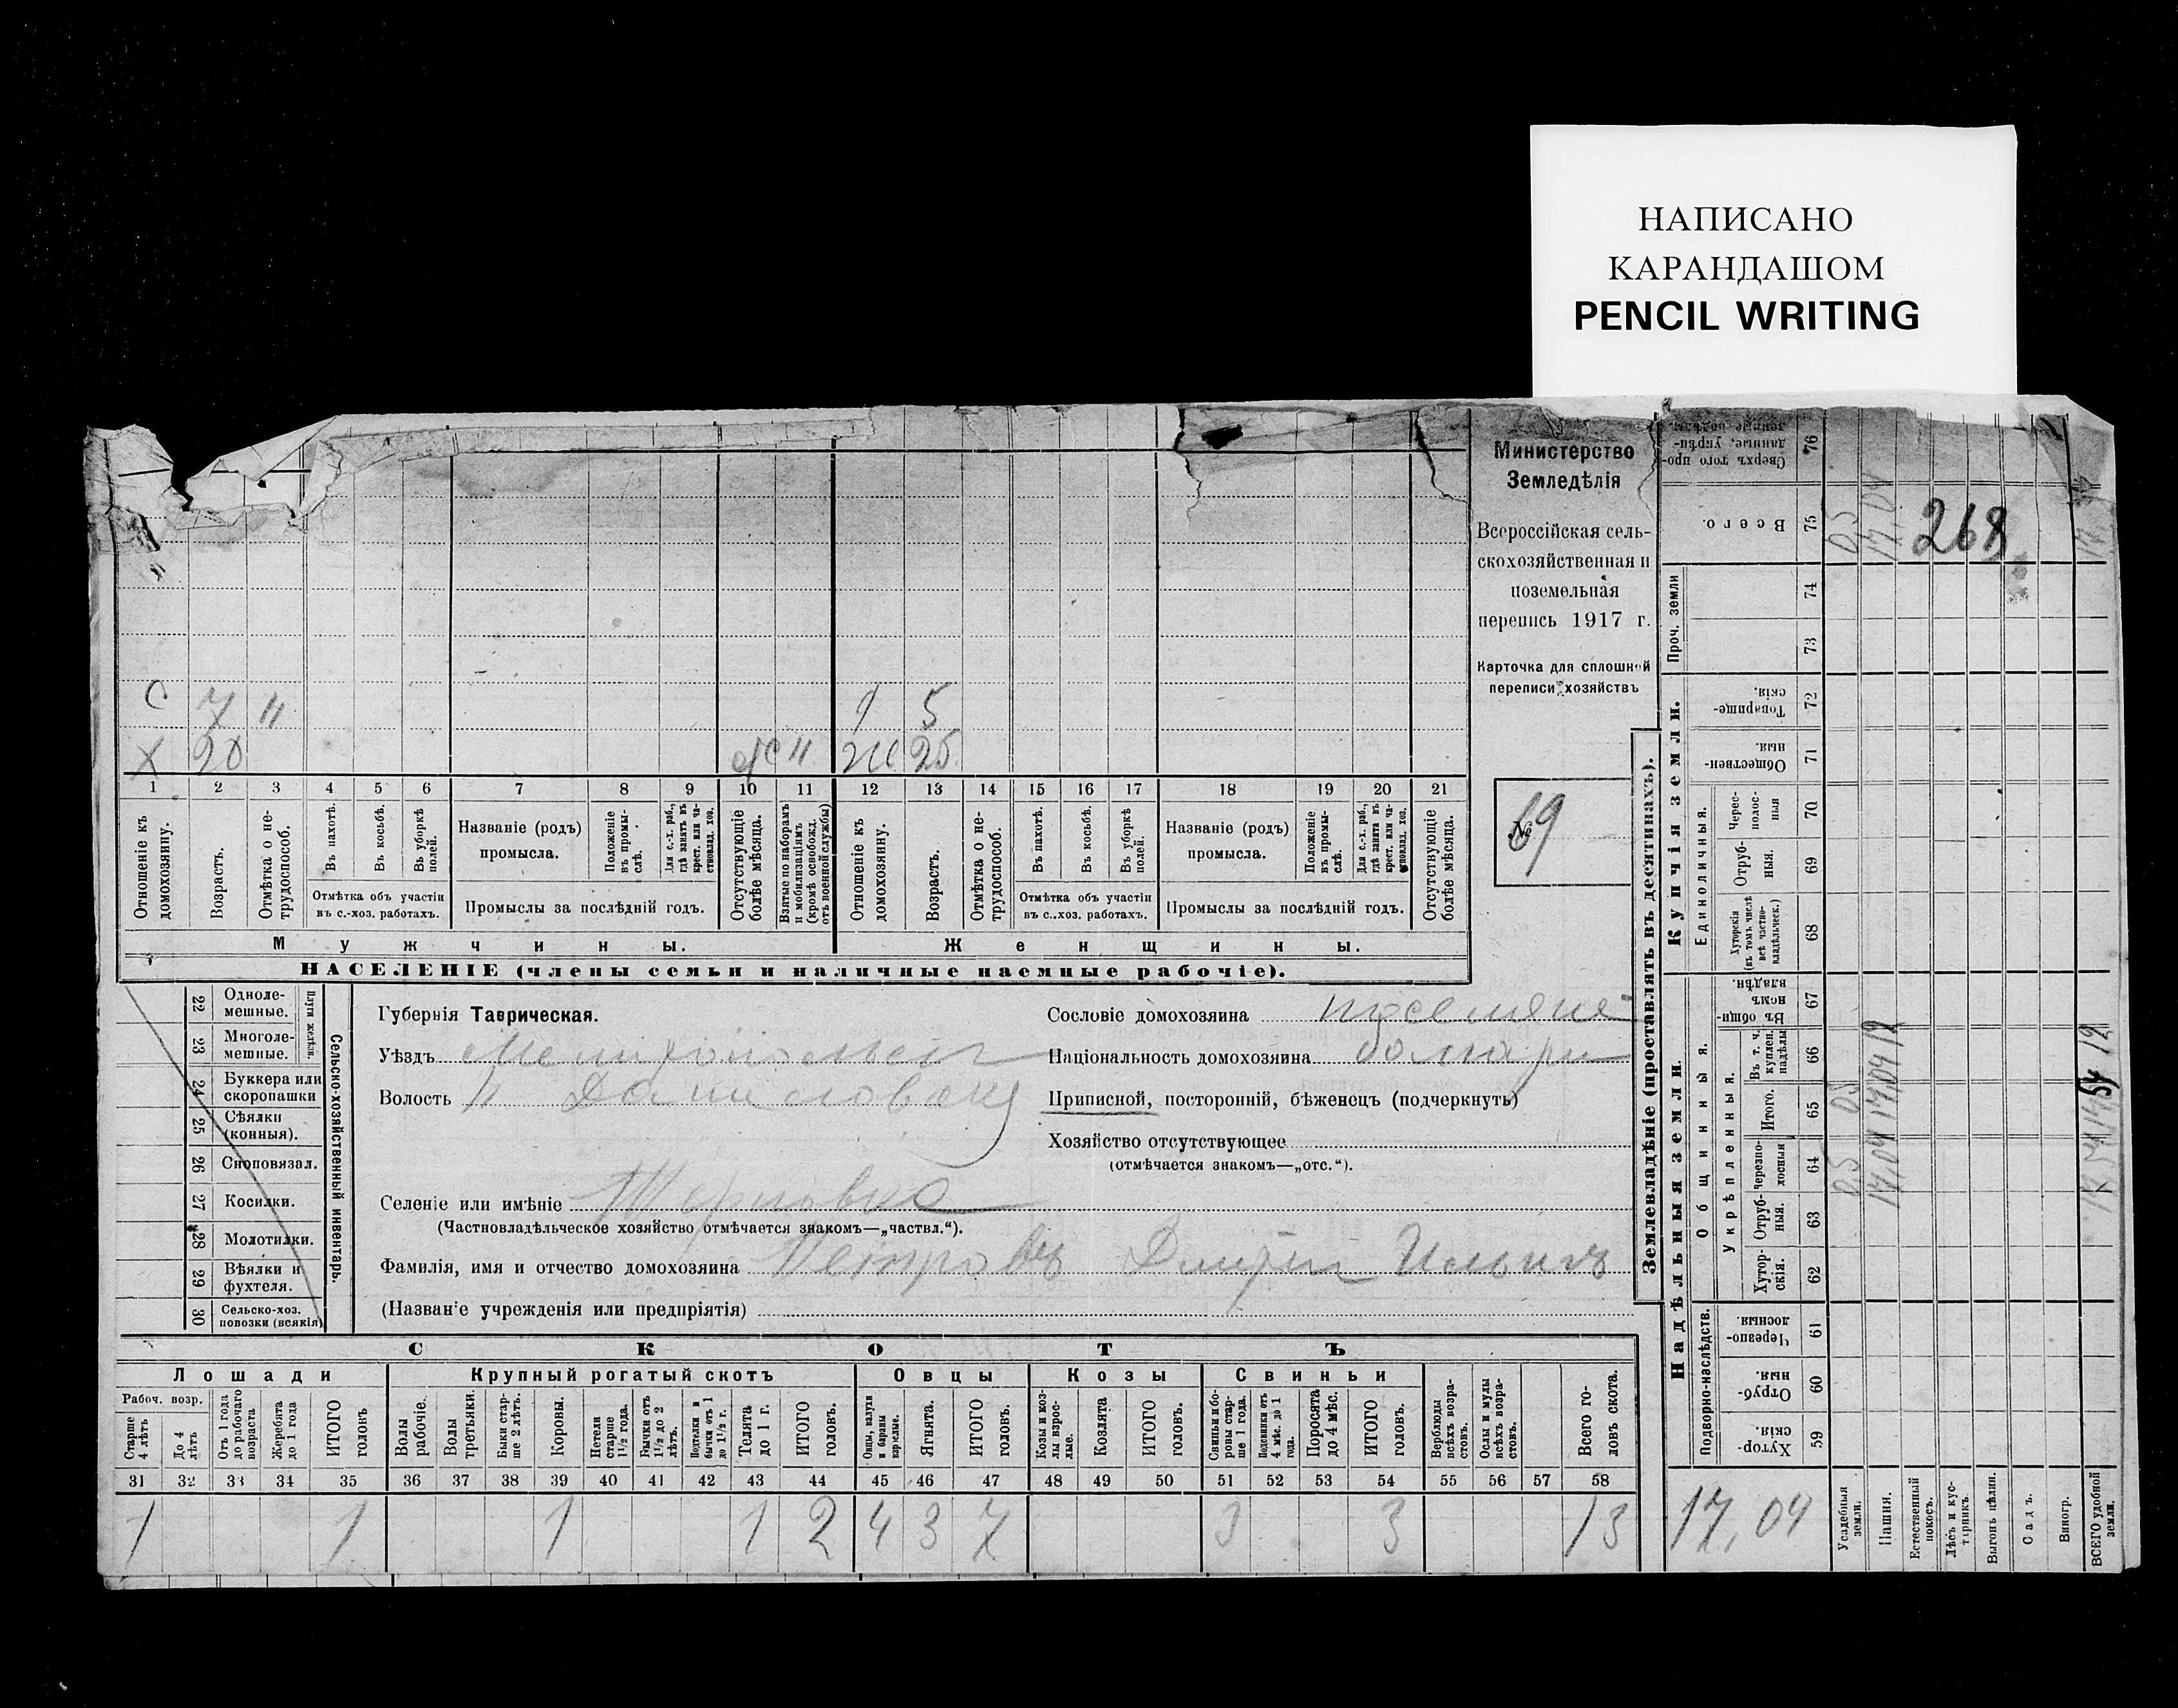 НАПИСАНО
КАРАНДАШОМ
PENCIL WRITING
Министерство
Земледѣлія
Всероссійская сель-
скохозяйственная и
поземельная
перепись 1917 г.
Карточка для сплошной
переписи хозяйствъ
№ 69
С 7 " 1 5
Х 20 " 25
1 2 3 4 5 6 7 8 9 10 11 12 13 14 15 16 17 18 19 20 21
Отношеніе къ домохозяину.
Возрастъ.
Отмѣтка о не-трудоспособ.
Въ пахотѣ.
Въ косьбѣ.
Въ уборкѣ полей.
Отмѣтка объ участіи
въ с.-хоз. работахъ.
Названіе (родъ)
промысла.
Положеніе въ промы-слѣ.
Для с.-х. раб., гдѣ занятъ въ крест. или ча-стновлад. хоз.
Промыслы за послѣдній годъ.
Отсутствующіе болѣе мѣсяца.
Взятые по наборамъ и мобилизаціямъ (кромѣ освобожд. отъ военной службы)
Отношеніе къ домохозяину.
Возрастъ.
Отмѣтка о не-трудоспособ.
Въ пахотѣ.
Въ косьбѣ.
Въ уборкѣ полей.
Отмѣтка объ участіи
въ с.-хоз. работахъ.
Названіе (родъ)
промысла.
Положеніе въ промы-слѣ.
Для с.-х. раб., гдѣ занята въ крест. или ча-стновлад. хоз.
Промыслы за послѣдній годъ.
Отсутствующіе болѣе мѣсяца.
Мужчины. Женщины.
НАСЕЛЕНІЕ (члены семьи и наличные наемные рабочіе).
Сельско-хозяйственный инвентарь.
Плуги желѣзн.
22 Одноле-мешные.
23 Многоле-мешные.
24 Буккера или скоропашки
25 Сѣялки (конныя).
26 Сноповязал.
27 Косилки.
28 Молотилки.
29 Вѣялки и фухтеля.
30 Сельско-хоз. повозки (всякія)
Губернія Таврическая.
Уѣздъ Мелитопольск
Волость " Даниловск
Селеніе или имѣніе
(Частновладѣльческое хозяйство отмѣчается знакомъ—„частвл.“).
Фамилія, имя и отчество домохозяина Петровъ Дмитрій Ильичъ
(Названіе учрежденія или предпріятія)
Сословіе домохозяина поселяне
Національность домохозяина болгаринъ
Приписной, посторонній, бѣженецъ (подчеркнуть)
Хозяйство отсутствующее
(отмѣчается знакомъ—„отс.“).
СКОТЪ
Лошади Крупный рогатый скотъ Овцы Козы Свиньи
Рабоч. возр.
Старше 4 лѣтъ
До 4 лѣтъ
Отъ 1 года до рабочаго возраста
Жеребята до 1 года
ИТОГО головъ
Волы рабочіе.
Волы третьяки.
Быки стар-ше 2 лѣтъ.
Коровы.
Нетели старше 1½ года.
Бычки отъ 1½ до 2 лѣтъ.
Подтелки и бычки отъ 1 до 1½ г.
Телята до 1 г.
ИТОГО головъ.
Овцы, валухи и бараны взрослые.
Ягнята.
ИТОГО головъ.
Козы и коз-лы взрос-лые.
Козлята
ИТОГО головъ.
Свиньи и бо-ровы стар-ше 1 года.
Подсвинки отъ 4 мѣс. до 1 года.
Поросята до 4 мѣс.
ИТОГО головъ.
Верблюды всѣхъ возра-стовъ.
Ослы и мулы всѣхъ возра-стовъ.
Всего го-ловъ скота.
31 32 33 34 35 36 37 38 39 40 41 42 43 44 45 46 47 48 49 50 51 52 53 54 55 56 57 58
1 1 1 1 2 4 3 7 3 3 13
Землевладѣніе (проставлять въ десятинахъ).
Надѣльныя земли.
Купчія земли.
Проч. земли
Подворно-наслѣдств.
Общинныя.
Укрѣпленныя.
Единоличныя.
Сверхъ того про-данные, укрѣп-ленные надѣлы. 76
Всего. 75
74
73
Товарище-скія. 72
Обществен-ныя. 71
Черес-полос-ныя 70
Отруб-ныя. 69
Хуторскія (въ томъ числѣ всѣ частно-владѣльческ.) 68
Въ общин-номъ владѣн. 67
Въ т. ч. куплен. надѣлы 66
Итого. 65
Черезпо-лосныя 64
Отруб-ныя. 63
Хутор-скія. 62
Черезпо-лосныя. 61
Отруб-ныя. 60
Хутор-скія. 59
268
17,04
Усадебныя земли.
Пашня.
Естественный покосъ.
Лѣсъ и кус-тарникъ.
Выгонъ цѣлин.
Садъ.
Виногр.
ВСЕГО удобной земли.
05 05 05
17,04 17,04 12 17,04